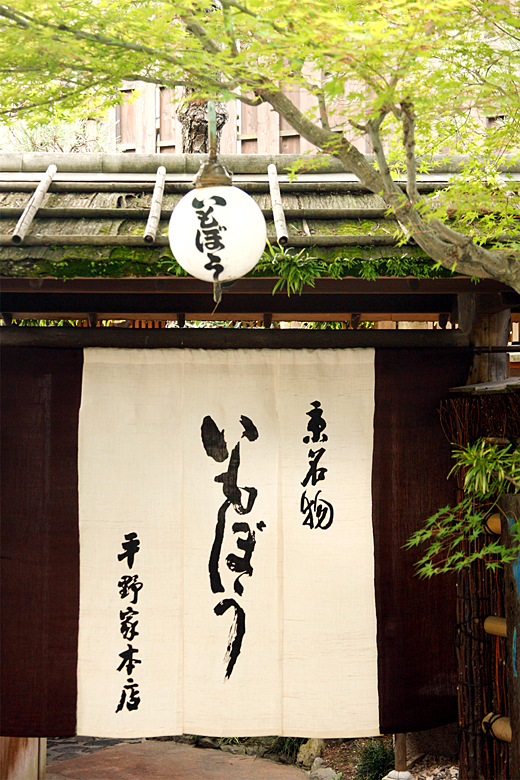 いもぼう
京名物
いもぼう
平野家本店